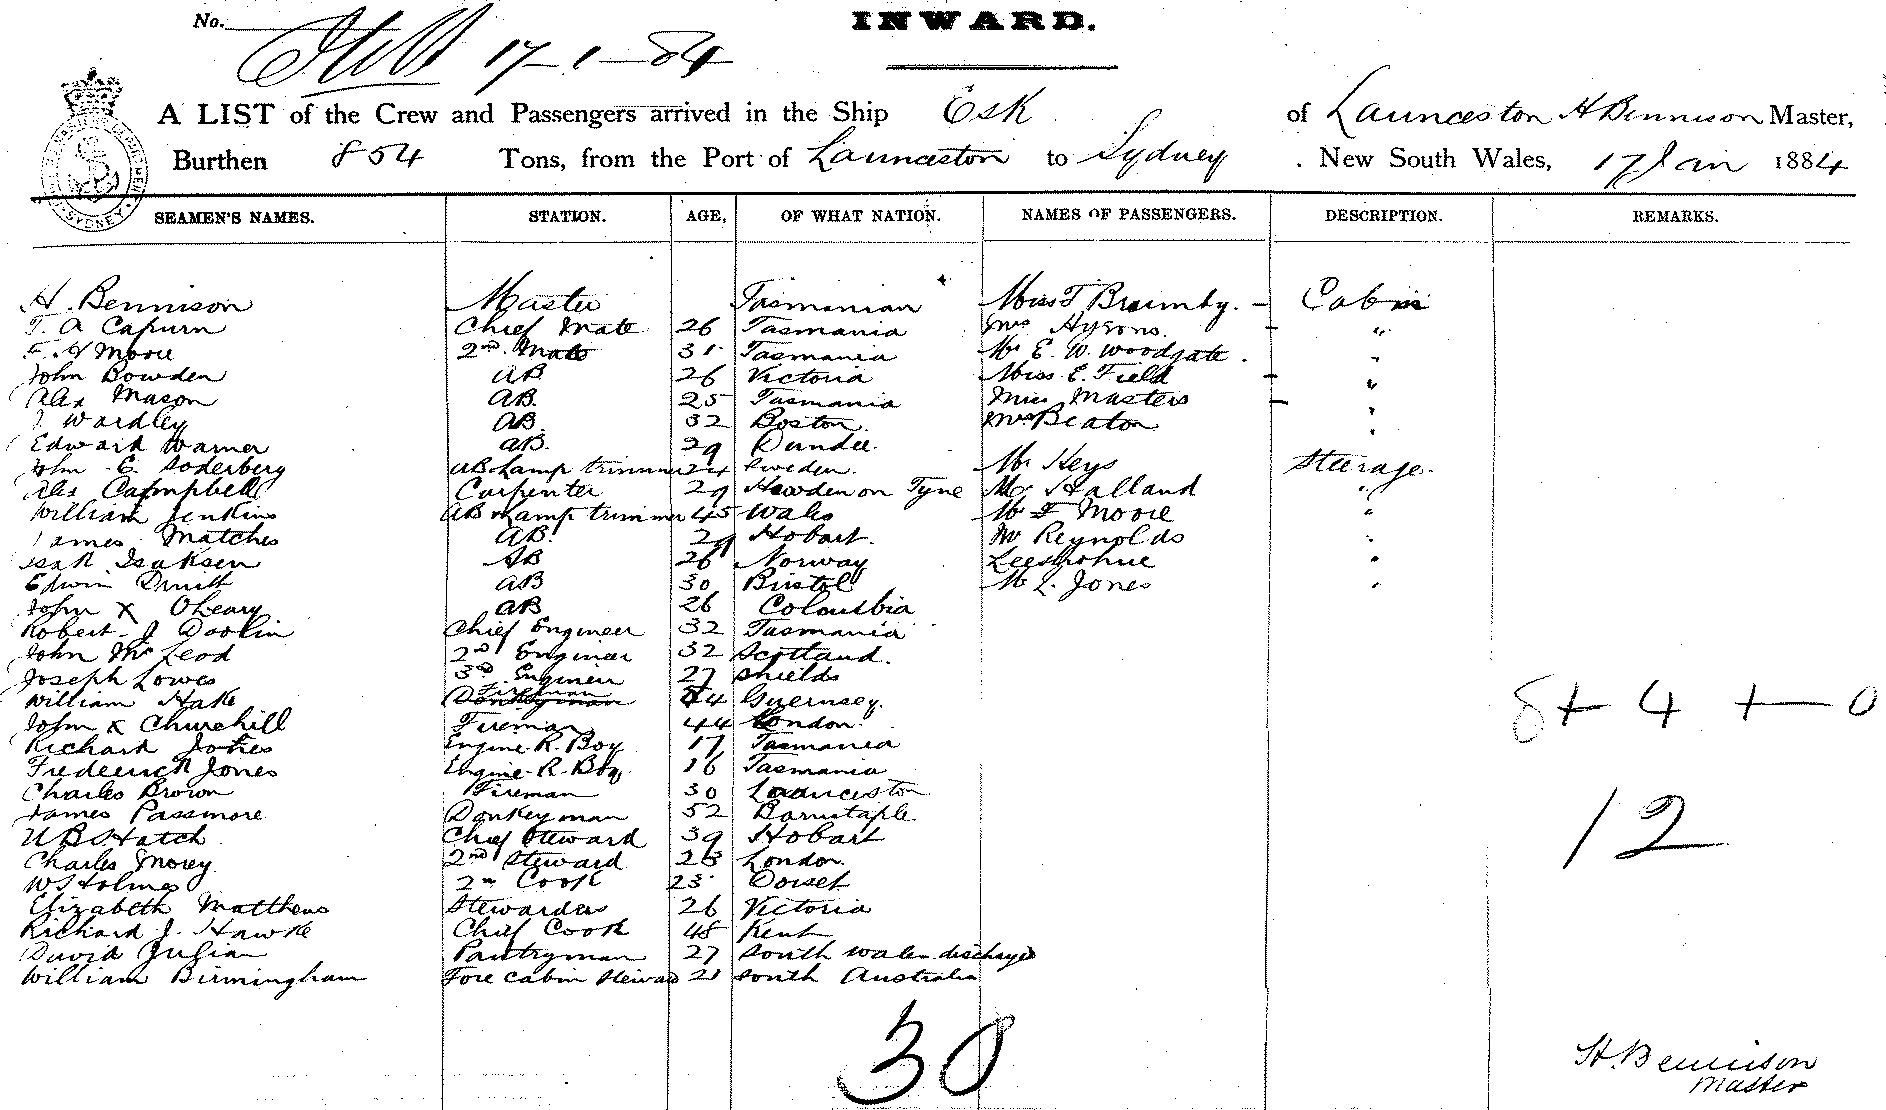 No.
17-1-84
INWARD.
A LIST of the Crew and Passengers arrived in the Ship Esk of Launceston H Bennison Master,
Burthen 854 Tons, from the Port of Launceston to Sydney . New South Wales, 17 Jan 1884
SEAMEN'S NAMES. STATION. AGE, OF WHAT NATION. NAMES OF PASSENGERS. DESCRIPTION. REMARKS.
H. Bennison Master Tasmanian Miss T Brumby. - Cabin
T. A Capurn Chief Mate 26 Tasmania Mrs Hysons. - "
F. A Moore 2nd Mate 31 Tasmania Mr E. W. Woodgate. "
John Bowden AB. 26 Victoria Miss E. Field - "
Alex Mason AB. 25 Tasmania Miss Masters - "
J Wardley AB. 32 Boston. Mrs Beaton "
Edward Warner AB. 29 Dundee
John E. Soderberg AB Lamp trimmer 24 Sweden. Mr Keys Steerage.
Alex Campbell Carpenter 29 Howden on Tyne Mr Halland "
William Jenkins AB & Lamp trimmer 45 Wales Mr F Moore "
James Matches AB. 29 Hobart. Mr Reynolds "
Isak Isaksen AB 26 Norway "
Edwin AB 30 Bristol Mr L. Jones "
John X OLeary AB 26 Columbia
Robert J Doolin Chief Engineer 32 Tasmania
John McLeod 2nd Engineer 32 Scotland.
Joseph Lowes 3rd Engineer 27 Shields
Fireman
William Hake Donkeyman 44 Guernsey.
John X Churchill Fireman 44 London.
Richard Jones Engine R. Boy 17 Tasmania
Frederick Jones Engine R. Boy 16 Tasmania
8 + 4 + 0
Charles Brown Fireman 30 Launceston
James Passmore Donkeyman 52 Barnstaple
12
W B Hatch Chief Steward 39 Hobart
Charles Morey 2nd Steward 23 London.
W S Holmes 2nd Cook 23 Dorset
Elizabeth Matthews Stewardess 26 Victoria
Richard J. Hawke Chief Cook 48 Kent
David Julian Pantryman 27 South Wales discharged
William Birmingham Fore cabin Steward 21 South Australia
30
H. Bennison
Master